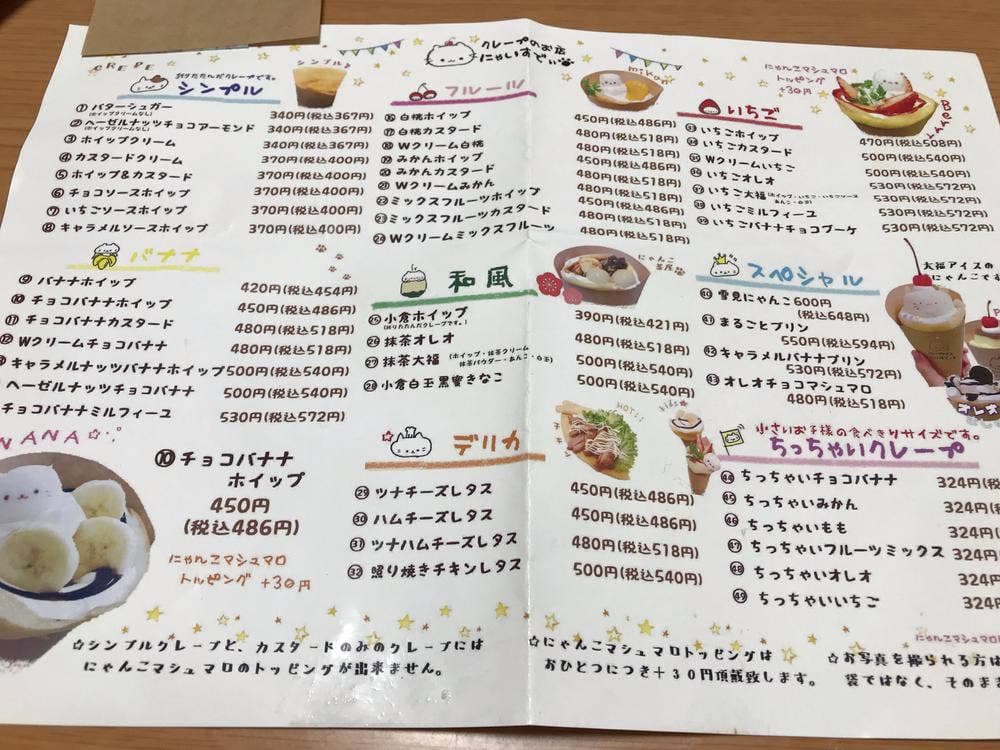 CREPE
クレープのお店
にゃいすでい
折りたたんだクレープです。
シンプル
シンプル♪
① バターシュガー 340円(税込367円)
(ホイップクリームなし)
② ヘーゼルナッツチョコアーモンド 340円(税込367円)
(ホイップクリームなし)
③ ホイップクリーム 340円(税込367円)
④ カスタードクリーム 370円(税込400円)
⑤ ホイップ&カスタード 370円(税込400円)
⑥ チョコソースホイップ 370円(税込400円)
⑦ いちごソースホイップ 370円(税込400円)
⑧ キャラメルソースホイップ 370円(税込400円)
バナナ
⑨ バナナホイップ 420円(税込454円)
⑩ チョコバナナホイップ 450円(税込486円)
⑪ チョコバナナカスタード 480円(税込518円)
⑫ Wクリームチョコバナナ 480円(税込518円)
キャラメルナッツバナナホイップ 500円(税込540円)
ヘーゼルナッツチョコバナナ 500円(税込540円)
チョコバナナミルフィーユ 530円(税込572円)
NANA☆
⑩ チョコバナナ
ホイップ
450円
(税込486円)
にゃんこマシュマロ
トッピング +30円
フルール
mikan
⑯ 白桃ホイップ 450円(税込486円)
⑰ 白桃カスタード 480円(税込518円)
⑱ Wクリーム白桃 480円(税込518円)
⑲ みかんホイップ 450円(税込486円)
⑳ みかんカスタード 480円(税込518円)
㉑ Wクリームみかん 480円(税込518円)
㉒ ミックスフルーツホイップ 450円(税込486円)
㉓ ミックスフルーツカスタード 480円(税込518円)
㉔ Wクリームミックスフルーツ 480円(税込518円)
和風
㉕ 小倉ホイップ 390円(税込421円)
(折りたたんだクレープです。)
㉖ 抹茶オレオ 480円(税込518円)
㉗ 抹茶大福 (ホイップ・抹茶クリーム 500円(税込540円)
抹茶パウダー・あんこ・白玉)
㉘ 小倉白玉黒蜜きなこ 500円(税込540円)
デリカ
㉙ ツナチーズレタス 450円(税込486円)
㉚ ハムチーズレタス 450円(税込486円)
㉛ ツナハムチーズレタス 480円(税込518円)
㉜ 照り焼きチキンレタス 500円(税込540円)
にゃんこマシュマロ
トッピング
+30円
いちご
㉝ いちごホイップ 470円(税込508円)
㉞ いちごカスタード 500円(税込540円)
㉟ Wクリームいちご 500円(税込540円)
㊱ いちごオレオ 530円(税込572円)
㊲ いちご大福 (ホイップ・いちご・いちごソース 530円(税込572円)
あんこ・白玉)
㊳ いちごミルフィーユ 530円(税込572円)
㊴ いちごバナナチョコブーケ 530円(税込572円)
スペシャル
大福アイスの
にゃんこです
㊵ 雪見にゃんこ 600円
(税込648円)
㊶ まるごとプリン
550円(税込594円)
㊷ キャラメルバナナプリン
530円(税込572円)
㊸ オレオチョコマシュマロ
480円(税込518円)
オレオ
小さいお子様の食べきりサイズです。
ちっちゃいクレープ
㊹ ちっちゃいチョコバナナ 324円(税込
㊺ ちっちゃいみかん 324円(税
㊻ ちっちゃいもも 324円(税
㊼ ちっちゃいフルーツミックス 324円
㊽ ちっちゃいオレオ 324円
㊾ ちっちゃいいちご 324円
☆シンプルクレープと、カスタードのみのクレープには
にゃんこマシュマロのトッピングが出来ません。
☆にゃんこマシュマロトッピングは
おひとつにつき+30円頂戴致します。
にゃんこマシュマロ
☆お写真を撮られる方は
袋ではなく、そのまま